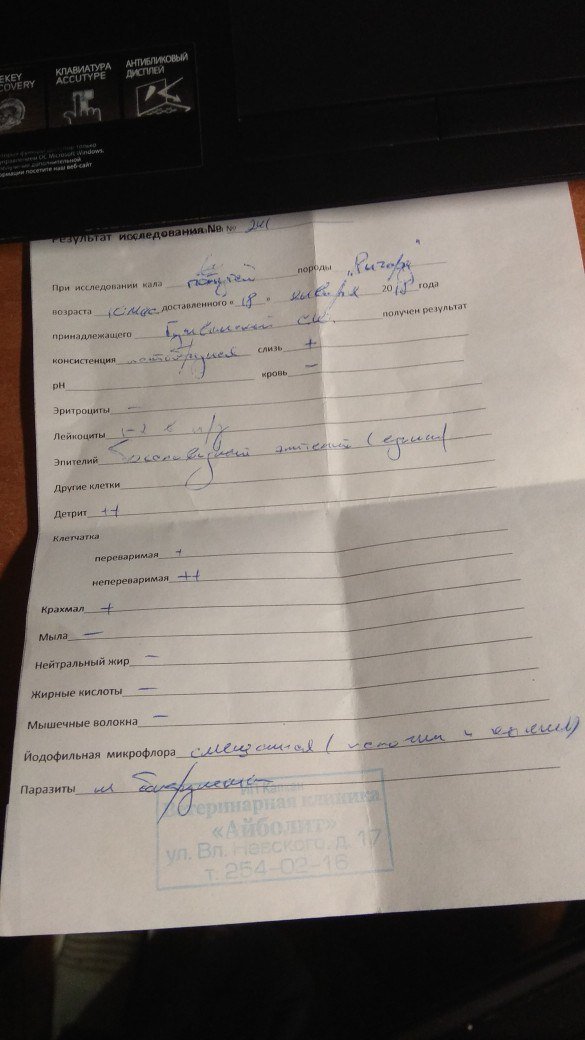 EKEY
COVERY
КЛАВИАТУРА
ACCUTYPE
АНТИБЛИКОВЫЙ
ДИСПЛЕЙ
только
управлением ОС Microsoft Windows.
получения дополнительной
формации посетите наш веб-сайт
Результат исследования № 241
При исследовании кала попугая породы "Ричард"
возраста доставленного « 18 » января 20 18 года
принадлежащего получен результат
консистенция слизь +
рН кровь –
Эритроциты –
Лейкоциты 1-2 в п/з
Эпителий эпителий (един)
Другие клетки
Детрит ++
Клетчатка
переваримая +
непереваримая ++
Крахмал +
Мыла –
Нейтральный жир –
Жирные кислоты –
Мышечные волокна –
Йодофильная микрофлора смешанная (
Паразиты не обнаружены
Ветеринарная клиника
«Айболит»
ул. Вл. Невского, д. 17
т. 254-02-16